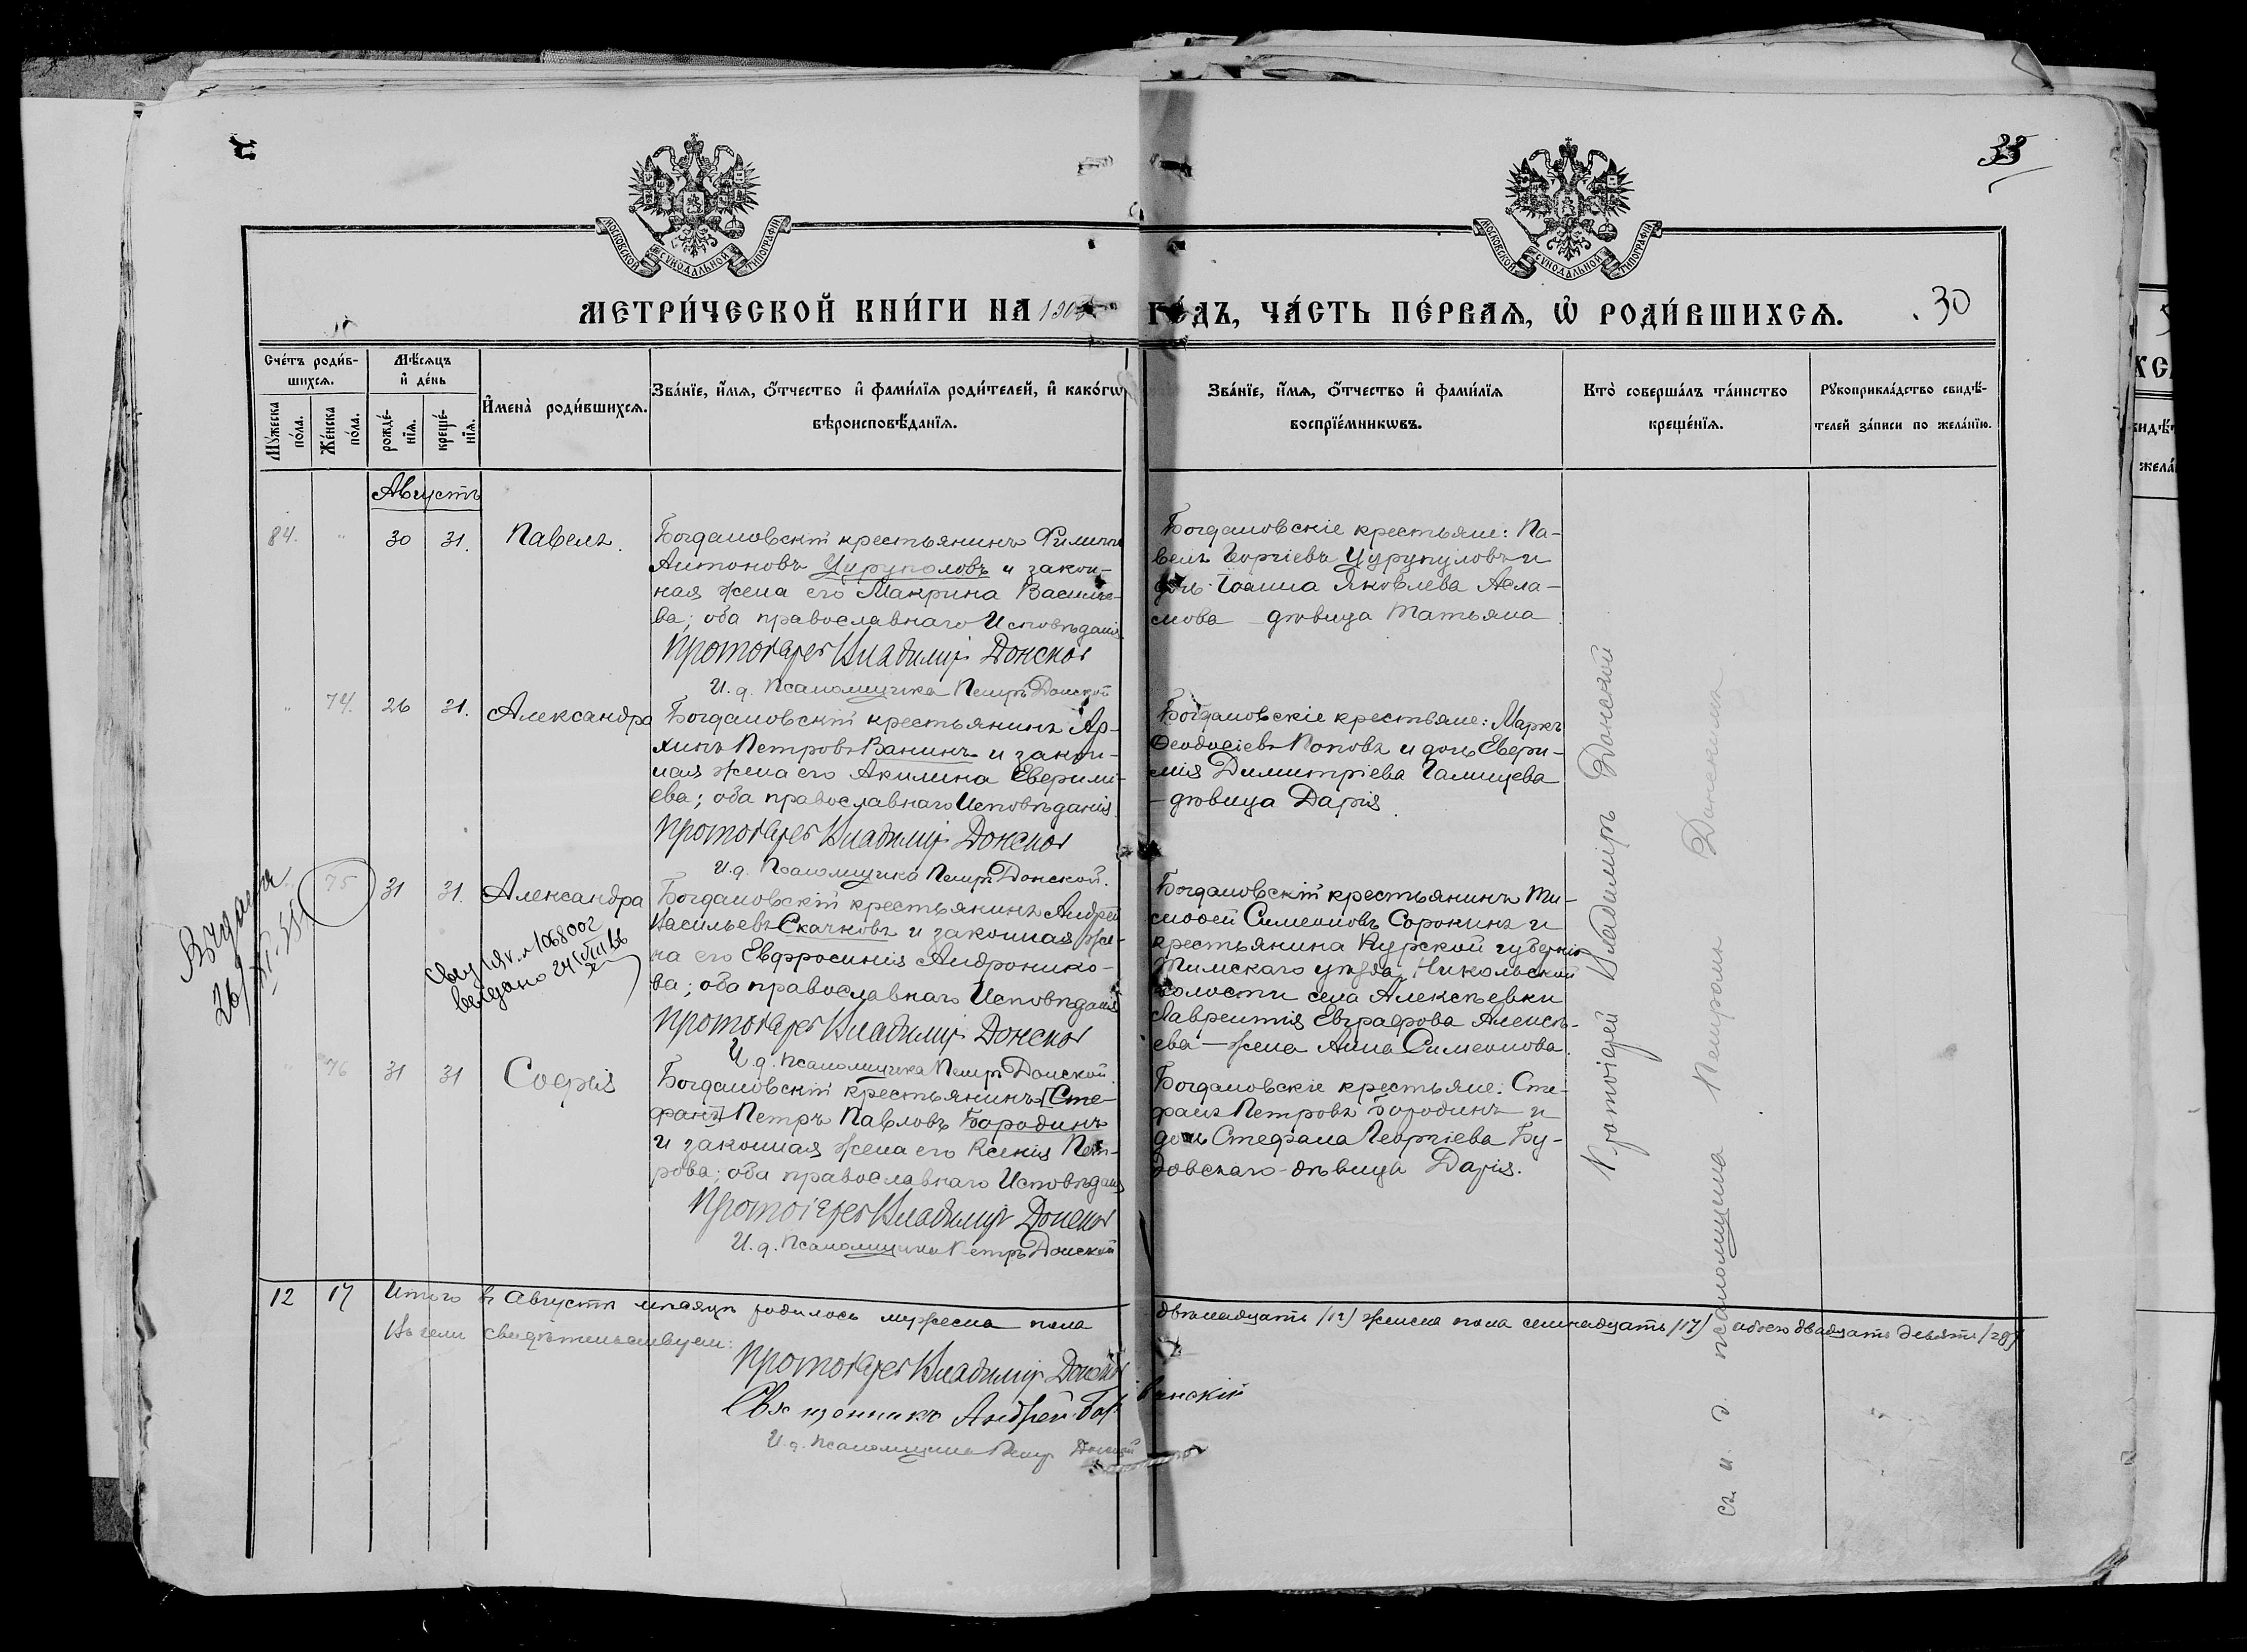 МОСКОВСКОЙ СУНОДАЛЬНОЙ ТИПОГРАФІИ
МОСКОВСКОЙ СУНОДАЛЬНОЙ ТИПОГРАФІИ
МЕТРИ́ЧЕСКОЙ КНИ́ГИ НА
ГО́ДЪ, ЧА́СТЬ ПЕ́РВАѦ, Ѽ РОДИ́ВШИХСѦ. 30
Сче́тъ роди́в-
шихсѧ.
Мѣ́сяцъ
и҆ де́нь
Мꙋ́жеска
по́ла.
Же́нска
по́ла.
рожде́-
нїѧ.
креще́-
нїѧ.
И҆мена̀ роди́вшихсѧ.
Зва́нїе, и҆́мѧ, ѻ҆́тчество и҆ фами́лїѧ роди́телей, и҆ како́гѡ
вѣроисповѣ́данїѧ.
Зва́нїе, и҆́мѧ, ѻ҆́тчество и҆ фами́лїѧ
воспрїе́мникѡвъ.
Кто̀ соверша́лъ та́инство
креще́нїѧ.
Рꙋкоприкла́дство свидѣ́-
телей за́писи по жела́нїю.
Августъ
84. " 30 31. Павелъ.
Богдановскій крестьянинъ Филиппъ
Антоновъ Цуруполовъ и закон-
ная жена его Макрина Василье-
ва; оба православнаго Исповѣданія
Протоіерей Владиміръ Донской
И. д. Псаломщика Петръ Донской
Богдановскіе крестьяне: Па-
велъ Георгіевъ Цурупуловъ и
дочь Іоанна Яковлева Асла-
мова – дѣвица Татьяна.
" 74. 26 31. Александра
Богдановскій крестьянинъ Ар-
хипъ Петровъ Ванинъ и закон-
ная жена его Акилина Евфимі-
ева; оба православнаго Исповѣданія.
Протоіерей Владиміръ Донской
И. д. Псаломщика Петръ Донской.
Богдановскіе крестьяне: Маркъ
Ѳеодосіевъ Поповъ и дочь Евфи-
мія Димитріева Галицева
– дѣвица Дарія.
" 75 31 31. Александра
Богдановскій крестьянинъ Андрей
Васильевъ Скачковъ и законная же-
на его Евфросинія Андронико-
ва; оба православнаго Исповѣданія
Протоіерей Владиміръ Донской
И. д. Псаломщика Петръ Донской.
Богдановскій крестьянинъ Ти-
моѳей Симеоновъ Сорокинъ и
крестьянина Курской губерніи
Тимскаго уѣзда, Никольской
волости села Алексѣевки
Лаврентія Евграфова Алексѣ-
ева – жена Анна Симеонова.
Выдана
" 76 31 31 Софія
Богдановскій крестьянинъ [Сте-
фанъ] Петръ Павловъ Бородинъ
и законная жена его Ксенія Пет-
рова; оба православнаго Исповѣданія
Протоіерей Владиміръ Донской
И. д. Псаломщика Петръ Донской
Богдановскіе крестьяне: Сте-
фанъ Петровъ Бородинъ и
дочь Стефана Георгіева Бу-
довскаго – дѣвица Дарія.
Протоіерей Владиміръ Донской
съ и. д. псаломщика Петромъ Донскимъ.
12 17 Итого въ Августѣ мѣсяцѣ родилось мужеска пола двѣнадцать /12/ женска пола семнадцать /17/ обоего двадцать девять /29/
Въ чемъ свидѣтельствуемъ:
Протоіерей Владиміръ Донской
Священникъ Андрей
И. д. Псаломщика Петръ Донской